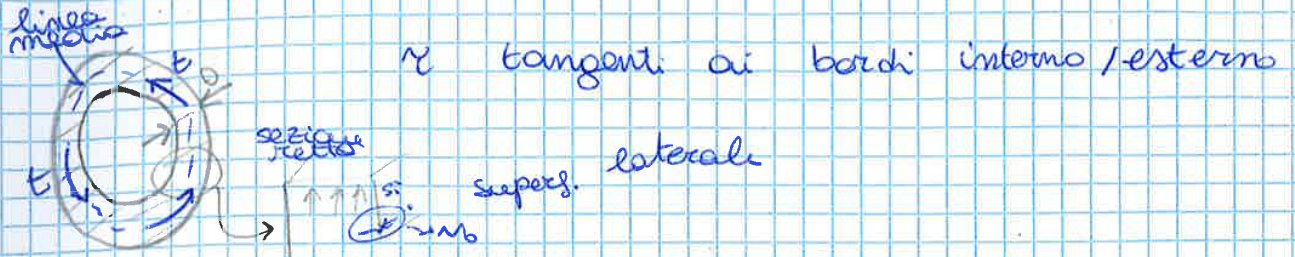 linea
media
t
τ tangenti ai bordi interno/esterno
sezione
retta
superf. laterale
t